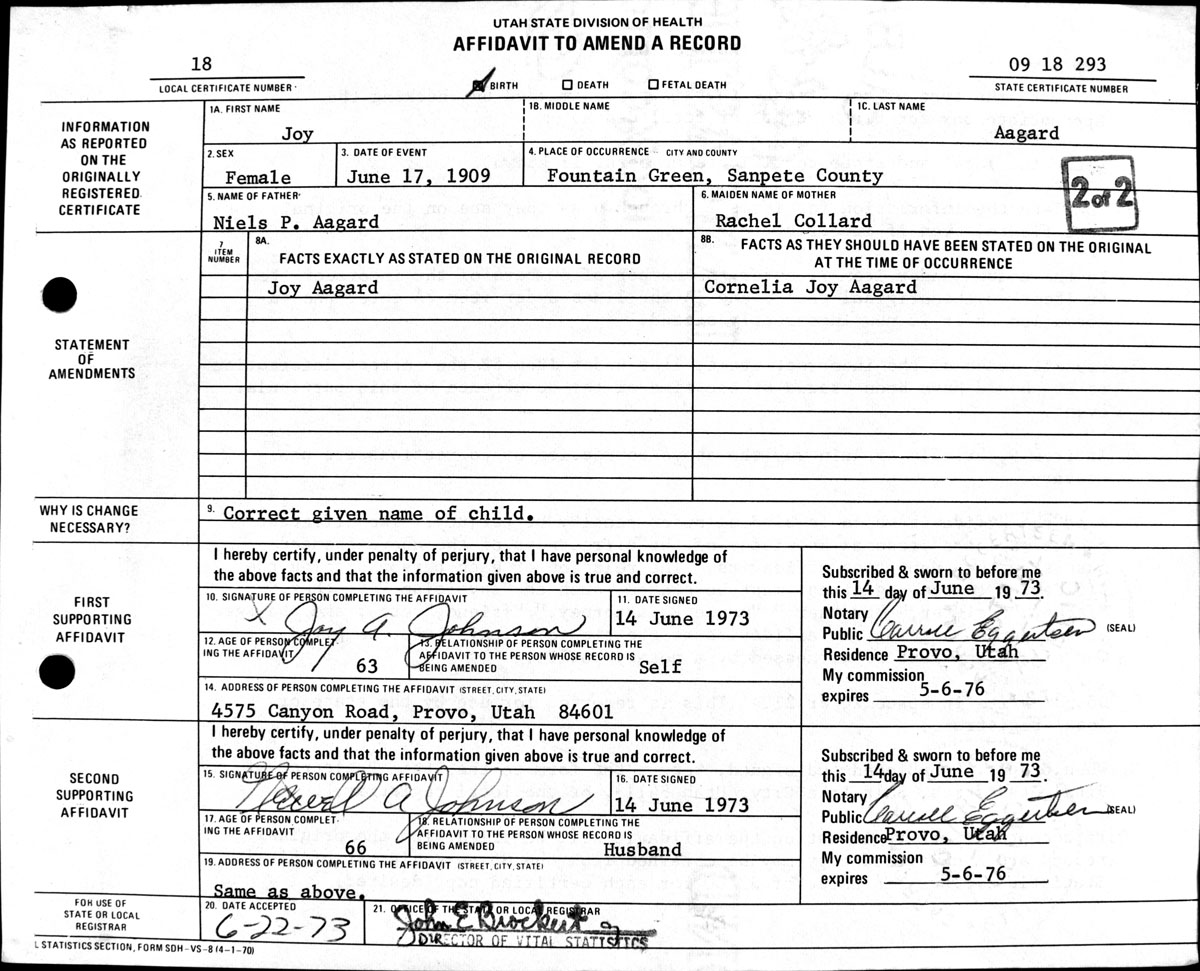 UTAH STATE DIVISION OF HEALTH
AFFIDAVIT TO AMEND A RECORD
18
LOCAL CERTIFICATE NUMBER
BIRTH DEATH FETAL DEATH
09 18 293
STATE CERTIFICATE NUMBER
INFORMATION
AS REPORTED
ON THE
ORIGINALLY
REGISTERED
CERTIFICATE
1A. FIRST NAME
Joy
1B. MIDDLE NAME
1C. LAST NAME
Aagard
2. SEX
Female
3. DATE OF EVENT
June 17, 1909
4. PLACE OF OCCURRENCE - CITY AND COUNTY
Fountain Green, Sanpete County
2 of 2
5. NAME OF FATHER
Niels P. Aagard
6. MAIDEN NAME OF MOTHER
Rachel Collard
STATEMENT
OF
AMENDMENTS
7
ITEM
NUMBER
8A.
FACTS EXACTLY AS STATED ON THE ORIGINAL RECORD
8B.
FACTS AS THEY SHOULD HAVE BEEN STATED ON THE ORIGINAL
AT THE TIME OF OCCURRENCE
Joy Aagard
Cornelia Joy Aagard
WHY IS CHANGE
NECESSARY?
9. Correct given name of child.
FIRST
SUPPORTING
AFFIDAVIT
I hereby certify, under penalty of perjury, that I have personal knowledge of
the above facts and that the information given above is true and correct.
10. SIGNATURE OF PERSON COMPLETING THE AFFIDAVIT
X Joy A. Johnson
11. DATE SIGNED
14 June 1973
12. AGE OF PERSON COMPLET-
ING THE AFFIDAVIT
63
13. RELATIONSHIP OF PERSON COMPLETING THE
AFFIDAVIT TO THE PERSON WHOSE RECORD IS
BEING AMENDED
Self
14. ADDRESS OF PERSON COMPLETING THE AFFIDAVIT (STREET, CITY, STATE)
4575 Canyon Road, Provo, Utah 84601
Subscribed & sworn to before me
this 14 day of June 19 73.
Notary
Public Carroll Eggertsen (SEAL)
Residence Provo, Utah
My commission
expires 5-6-76
SECOND
SUPPORTING
AFFIDAVIT
I hereby certify, under penalty of perjury, that I have personal knowledge of
the above facts and that the information given above is true and correct.
15. SIGNATURE OF PERSON COMPLETING AFFIDAVIT
A Johnson
16. DATE SIGNED
14 June 1973
17. AGE OF PERSON COMPLET-
ING THE AFFIDAVIT
66
18. RELATIONSHIP OF PERSON COMPLETING THE
AFFIDAVIT TO THE PERSON WHOSE RECORD IS
BEING AMENDED
Husband
19. ADDRESS OF PERSON COMPLETING THE AFFIDAVIT (STREET, CITY, STATE)
Same as above.
Subscribed & sworn to before me
this 14 day of June 19 73.
Notary
Public Carroll Eggertsen (SEAL)
Residence Provo, Utah
My commission
expires 5-6-76
FOR USE OF
STATE OR LOCAL
REGISTRAR
20. DATE ACCEPTED
6-22-73
21. OFFICE OF THE STATE OR LOCAL REGISTRAR
John E Brockert
DIRECTOR OF VITAL STATISTICS
L STATISTICS SECTION, FORM SDH-VS-8 (4-1-70)